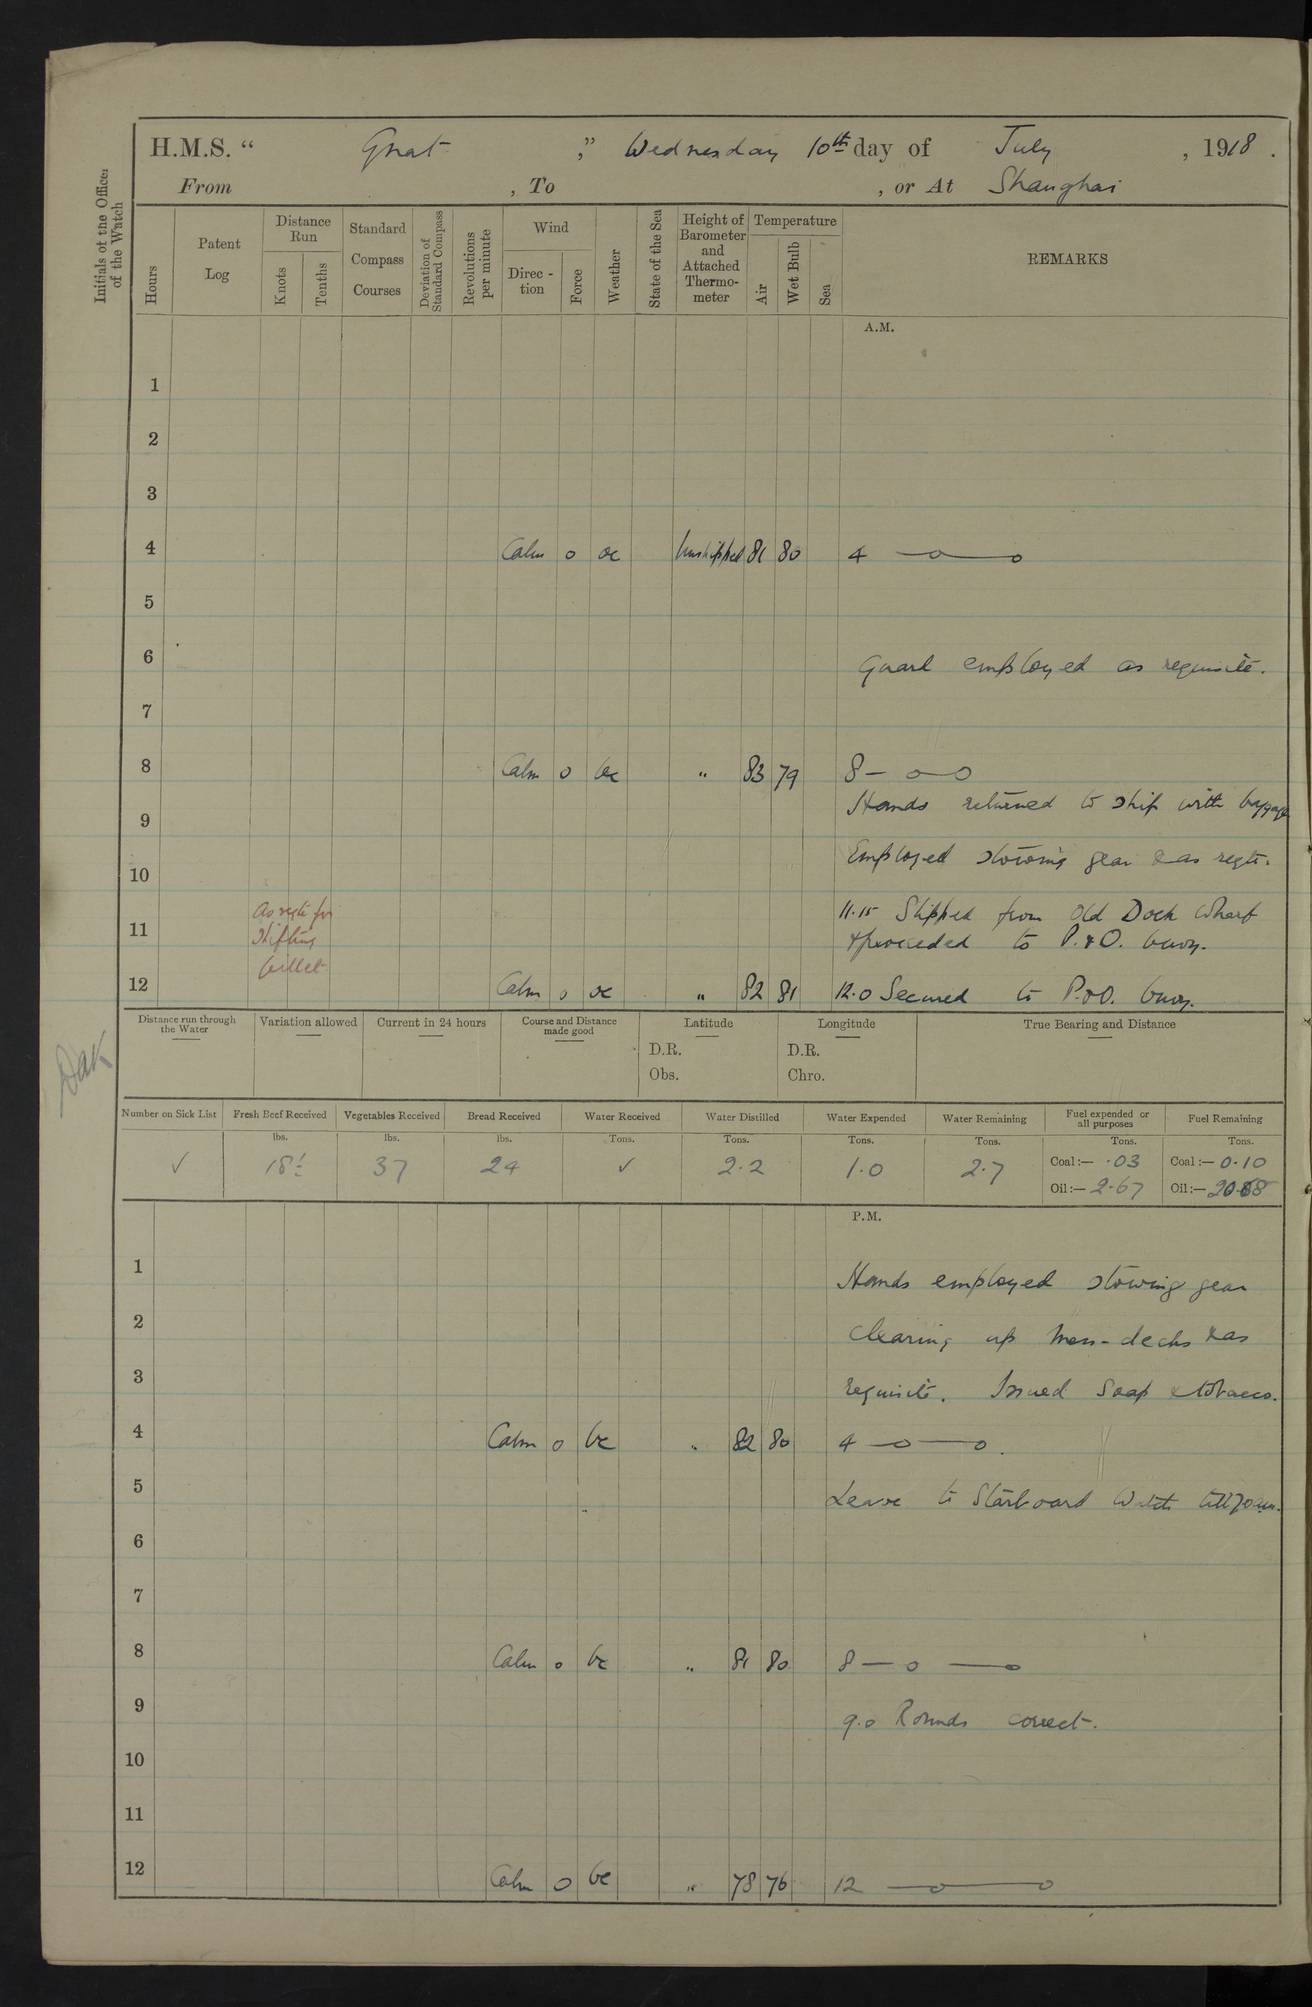 H.M.S. “ Gnat ,” Wednesday 10th day of July , 1918 .
From , To , or At Shanghai
Initials of the Officer of the Watch
Hours
Patent Log
Distance Run
Knots
Tenths
Standard Compass Courses
Deviation of Standard Compass
Revolutions per minute
Wind
Direc - tion
Force
Weather
State of the Sea
Height of Barometer and Attached Thermo- meter
Temperature
Air
Wet Bulb
Sea
REMARKS
A.M.
1
2
3
4 Calm 0 oc Unshipped 81 80 4 —o—o
5
6 Guard employed as requisite.
7
8 Calm 0 bc " 83 79 8 — o—o
Hands returned to ship with baggage
9
Employed stowing gear & as reqte.
10
As reqte for 11.15 Slipped from Old Dock Wharf
11 shifting & proceeded to P.&O. buoy.
billet
12 Calm 0 oc " 82 81 12.0 Secured to P.&O. buoy.
Distance run through the Water
Variation allowed
Current in 24 hours
Course and Distance made good
Latitude
D.R.
Obs.
Longitude
D.R.
Chro.
True Bearing and Distance
Number on Sick List Fresh Beef Received Vegetables Received Bread Received Water Received Water Distilled Water Expended Water Remaining Fuel expended for all purposes Fuel Remaining
lbs. lbs. lbs. Tons. Tons. Tons. Tons. Tons. Tons.
✓ 18½ 37 24 ✓ 2.2 1.0 2.7 Coal:— .03 Coal:— 0.10
Oil:— 2.67 Oil:—
P.M.
1 Hands employed stowing gear
2 Clearing up mess-decks & as
3 requisite. Issued soap & tobacco.
4 Calm 0 bc " 82 80 4 —o—o.
5 Leave to Starboard Watch till 7.0 am.
6
7
8 Calm 0 bc " 81 80 8 — o —o
9 9.0 Rounds correct.
10
11
12 Calm 0 bc " 78 76 12 —o—o